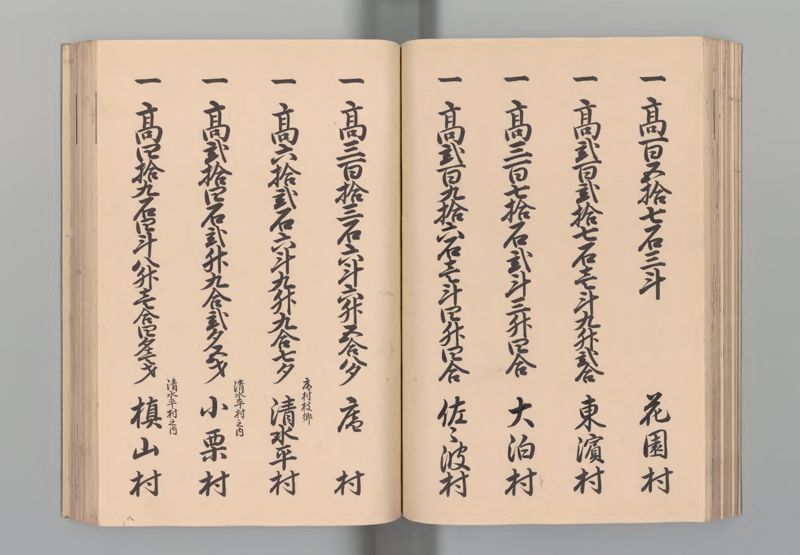 一 高百五拾七石三斗 花園村
一 高弐百弐拾七石壱斗九升弐合 東濱村
一 高三百七拾石弐斗三升四合 大泊村
一 高弐百九拾六石壱斗四升四合 佐々波村
一 高三百拾三石六斗六升五合八夕 庵村
一 高六拾弐石六斗九升九合七夕 庵村枝郷 清水平村
一 高弐拾四石弐升九合弐夕五才 清水平村之内 小栗村
一 高四拾九石四斗八升壱合四夕壱才 清水平村之内 槙山村